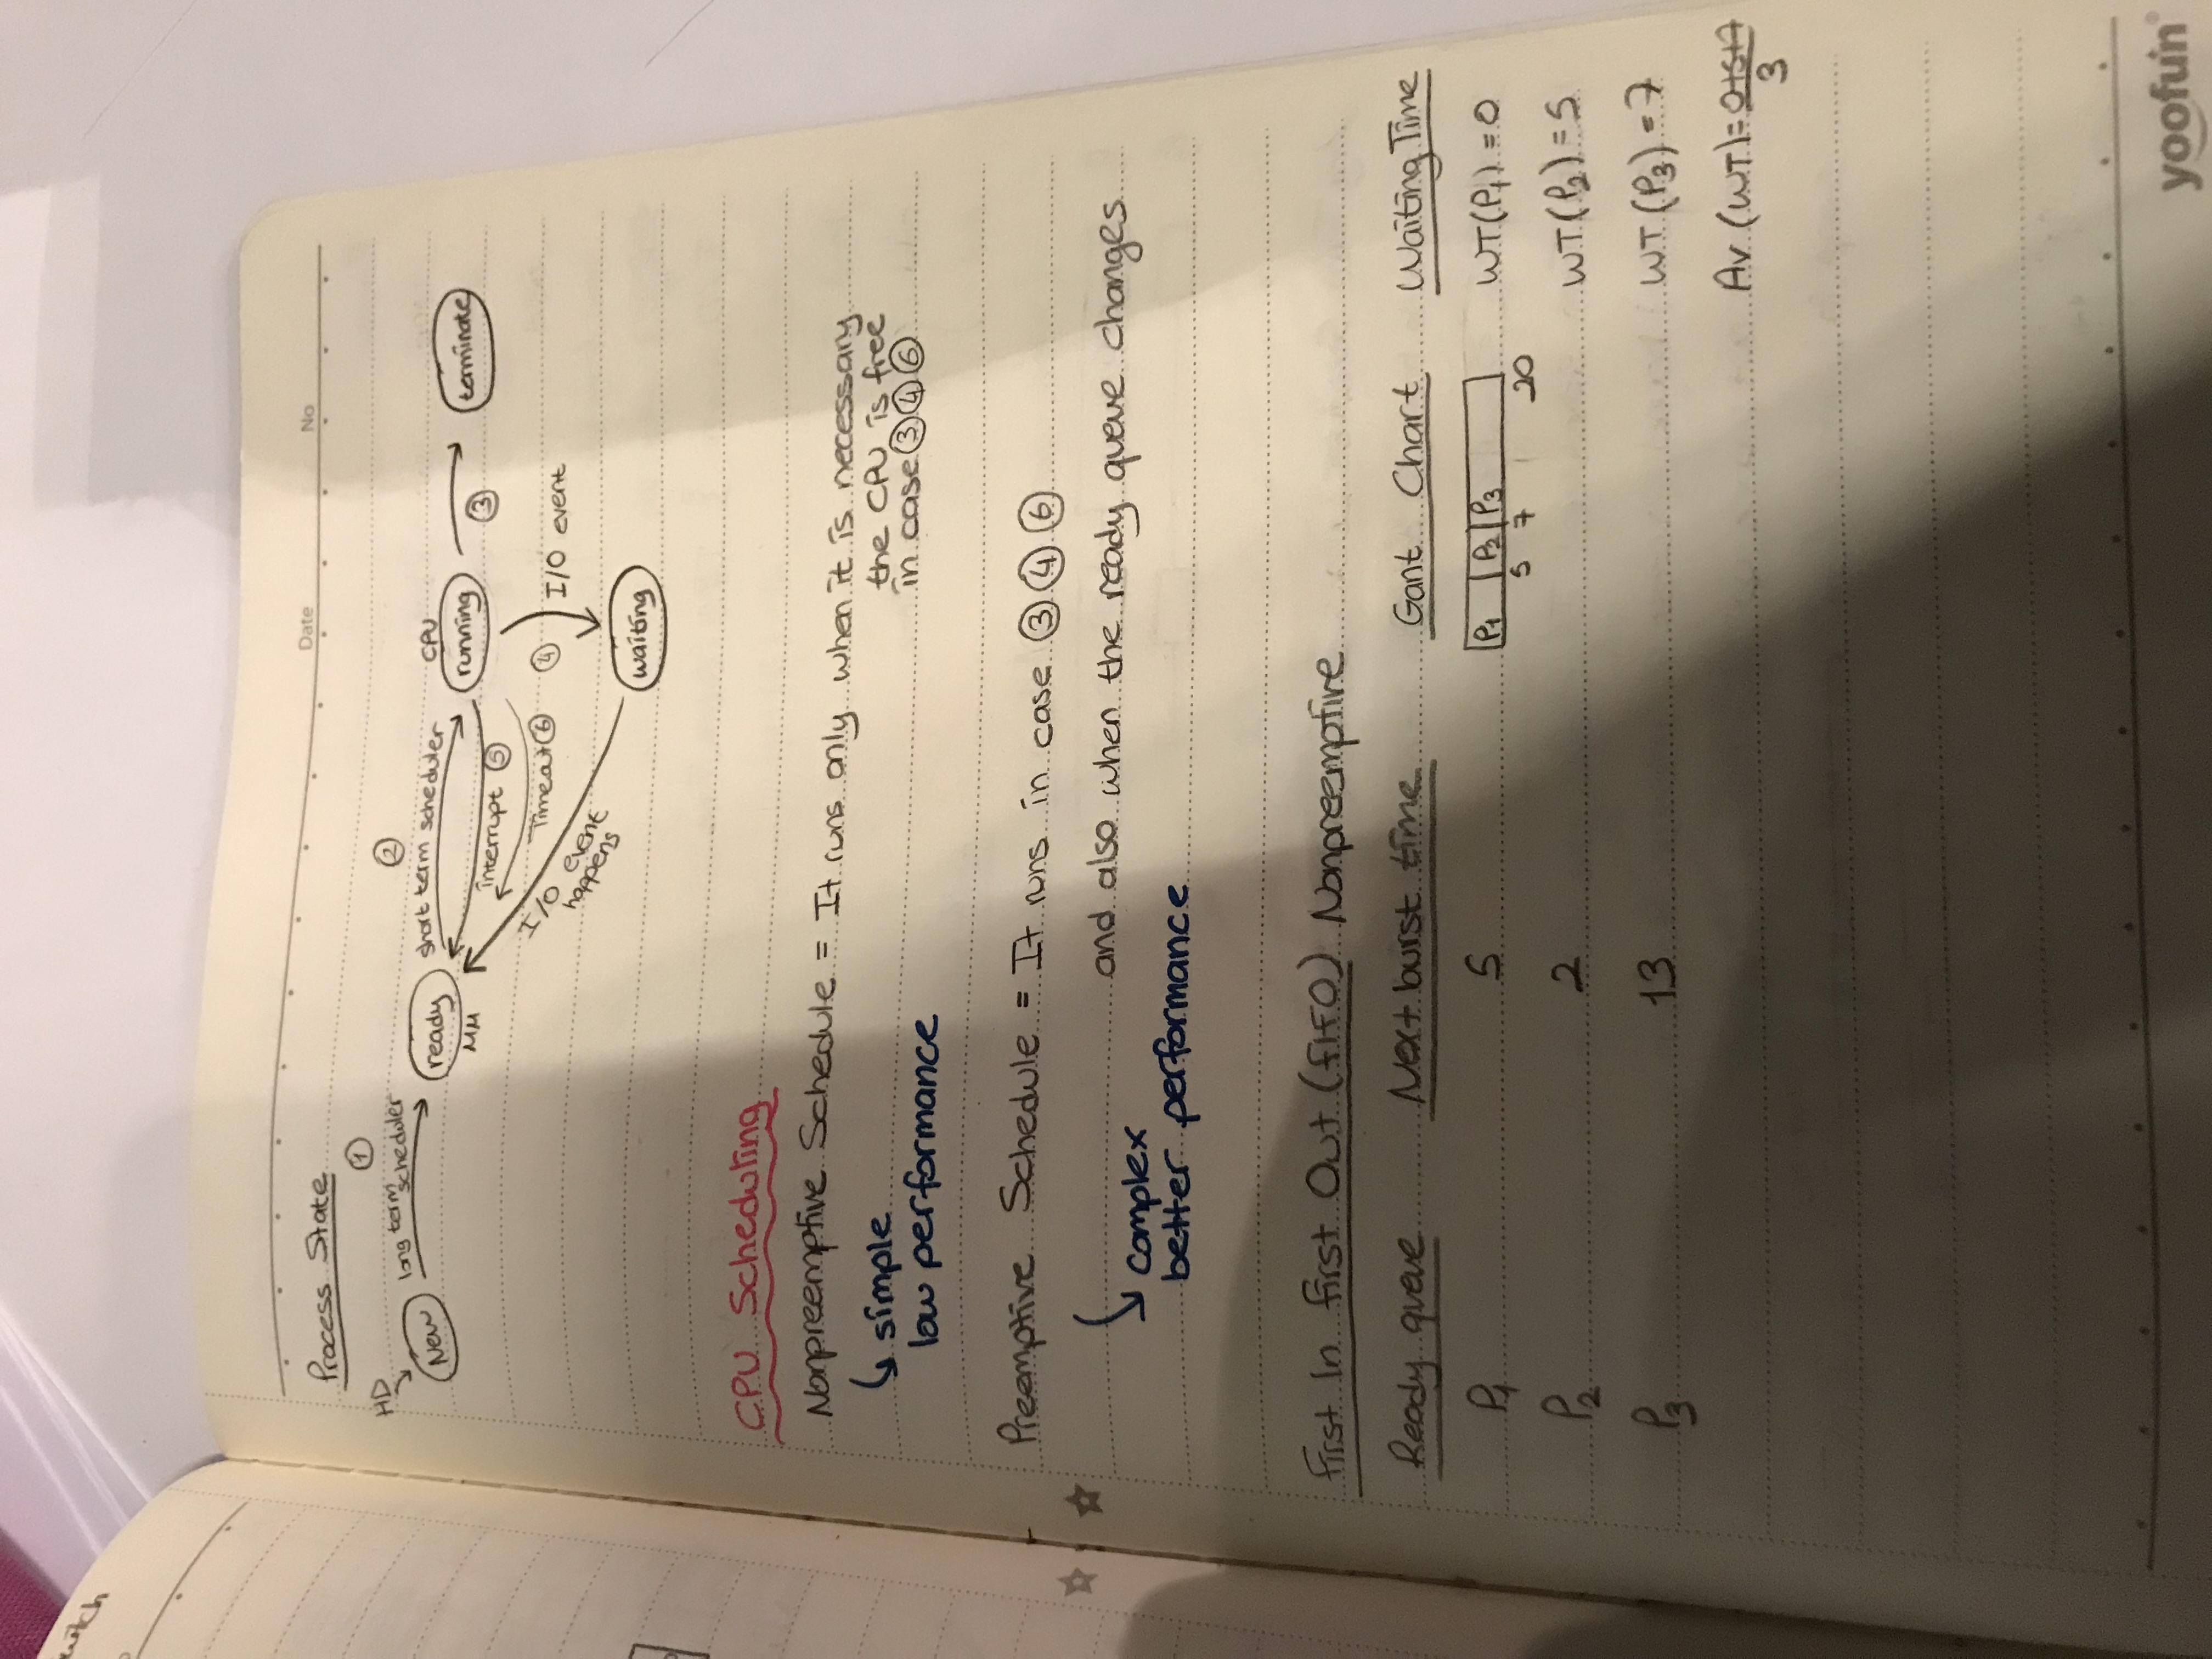 witch
Date No
Process State
①
HD
New
long term scheduler
ready
MM
②
short term scheduler
CPU
running
③
terminate
interrupt ⑤
Timeout ⑥
④
I/O event
I/O event
happens
waiting
CPU Scheduling
Nonpreemptive Schedule = It runs only when it is necessary
the CPU is free
in case ③ ④ ⑥
simple
low performance
Preemptive Schedule = It runs in case ③ ④ ⑥
and also when the ready queue changes
complex
better performance
First In First Out (FIFO) Nonpreemptive
Ready queue Next burst time Gant Chart Waiting Time
P1 5 P1 P2 P3 WT(P1) = 0
5 7 20
P2 2 WT(P2) = 5
P3 13 WT(P3) = 7
Av (WT) = 0+5+7
3
yoofun